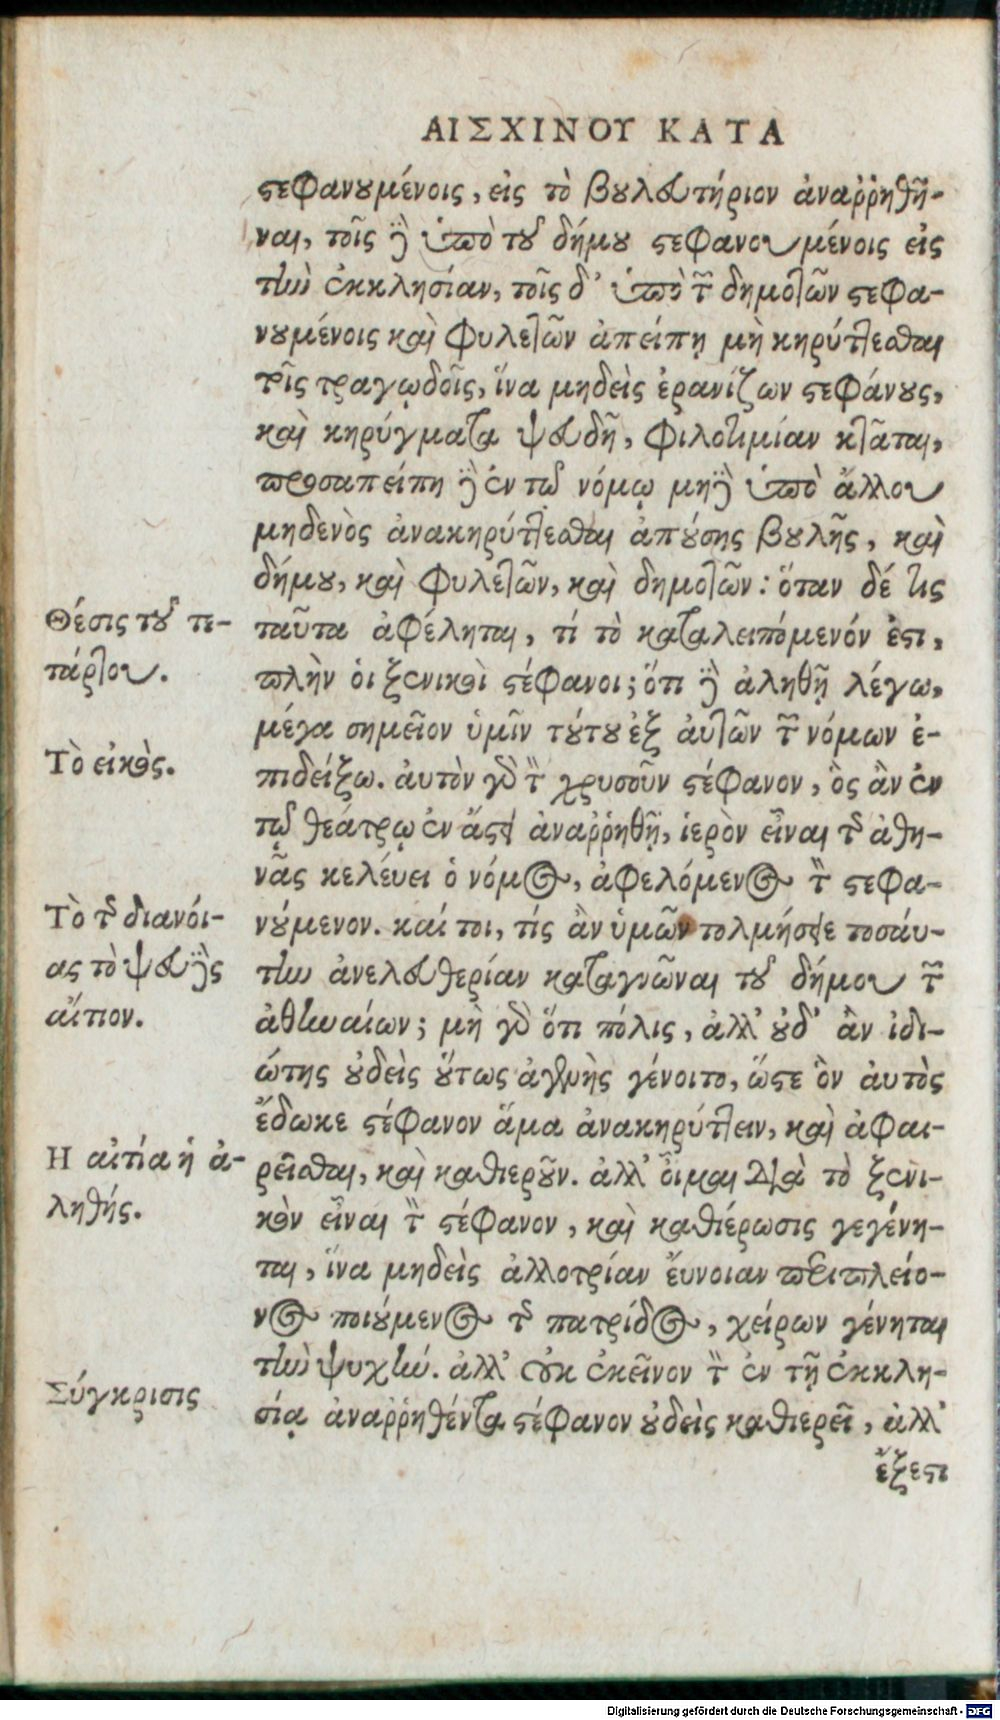 ΑΙΣΧΙΝΟΥ ΚΑΤΑ
στεφανουμένοις, εἰς τὸ βουλευτήριον ἀναῤῥηθῆ-
ναι, τοῖς δὲ ὑπὸ τοῦ δήμου στεφανουμένοις εἰς
τὴν ἐκκλησίαν, τοῖς δ' ὑπὸ τῶν δημοτῶν στεφα-
νουμένοις καὶ φυλετῶν ἀπείπῃ μὴ κηρύττεσθαι
τοῖς τραγῳδοῖς, ἵνα μηδεὶς ἐρανίζων στεφάνους,
καὶ κηρύγματα ψευδῆ, φιλοτιμίαν κτᾶται,
προσαπείπη δὲ ἐν τῷ νόμῳ μηδὲ ὑπὸ ἄλλου
μηδενὸς ἀνακηρύττεσθαι ἀπούσης βουλῆς, καὶ
δήμου, καὶ φυλετῶν, καὶ δημοτῶν: ὅταν δέ τις
Θέσις τοῦ τε-
ταῦτα ἀφέληται, τί τὸ καταλειπόμενόν ἐστι,
τάρτου.
πλὴν οἱ ξενικοὶ στέφανοι; ὅτι δὲ ἀληθῆ λέγω,
μέγα σημεῖον ὑμῖν τούτου ἐξ αὐτῶν τῶν νόμων ἐ-
Τὸ εἰκὸς.
πιδείξω. αὐτὸν γὰρ τὸν χρυσοῦν στέφανον, ὃς ἂν ἐν
τῷ θεάτρῳ ἐν ἄστει ἀναῤῥηθῇ, ἱερὸν εἶναι τῆς ἀθη-
νᾶς κελεύει ὁ νόμος, ἀφελόμενος τὸν στεφα-
Τὸ τῆς διανόι-
νούμενον. καί τοι, τίς ἂν ὑμῶν τολμήσειε τοσαύ-
ας τὸ ψευδὲς
την ἀνελευθερίαν καταγνῶναι τοῦ δήμου τῶν
αἴτιον.
ἀθηναίων; μὴ γὰρ ὅτι πόλις, ἀλλ' οὐδ' ἂν ἰδι-
ώτης οὐδεὶς οὕτως ἀγεννὴς γένοιτο, ὥστε ὃν αὐτὸς
ἔδωκε στέφανον ἅμα ἀνακηρύττειν, καὶ ἀφαι-
Η αἰτία ἡ ἀ-
ρεῖσθαι, καὶ καθιεροῦν. ἀλλ' οἶμαι διὰ τὸ ξενι-
ληθής.
κὸν εἶναι τὸν στέφανον, καὶ καθιέρωσις γεγένη-
ται, ἵνα μηδεὶς ἀλλοτρίαν ἔυνοιαν περὶ πλείο-
νος ποιούμενος τῆς πατρίδος, χείρων γένηται
τὴν ψυχήν. ἀλλ' οὐκ ἐκεῖνον τὸν ἐν τῇ ἐκκλη-
Σύγκρισις
σίᾳ ἀναῤῥηθέντα στέφανον οὐδεὶς καθιερεῖ, ἀλλ'
ἔξεστι
Digitalisierung gefördert durch die Deutsche Forschungsgemeinschaft - DFG